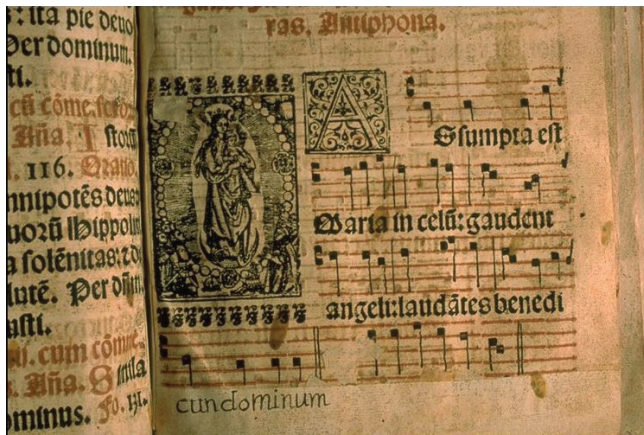 s: ita pie deuo
Per dominum.
sti.
Aña. Istorū
116. Oratio.
nnipotēs deus
uorū Hippoli
a solēnitas: z
lutē. Per dñm.
usti.
cum cōme
Aña. Simila
ominus. Fo. 131.
ras. Antiphona.
ASsumpta est
Maria in celū: gaudent
angeli: laudātes benedi
cundominum